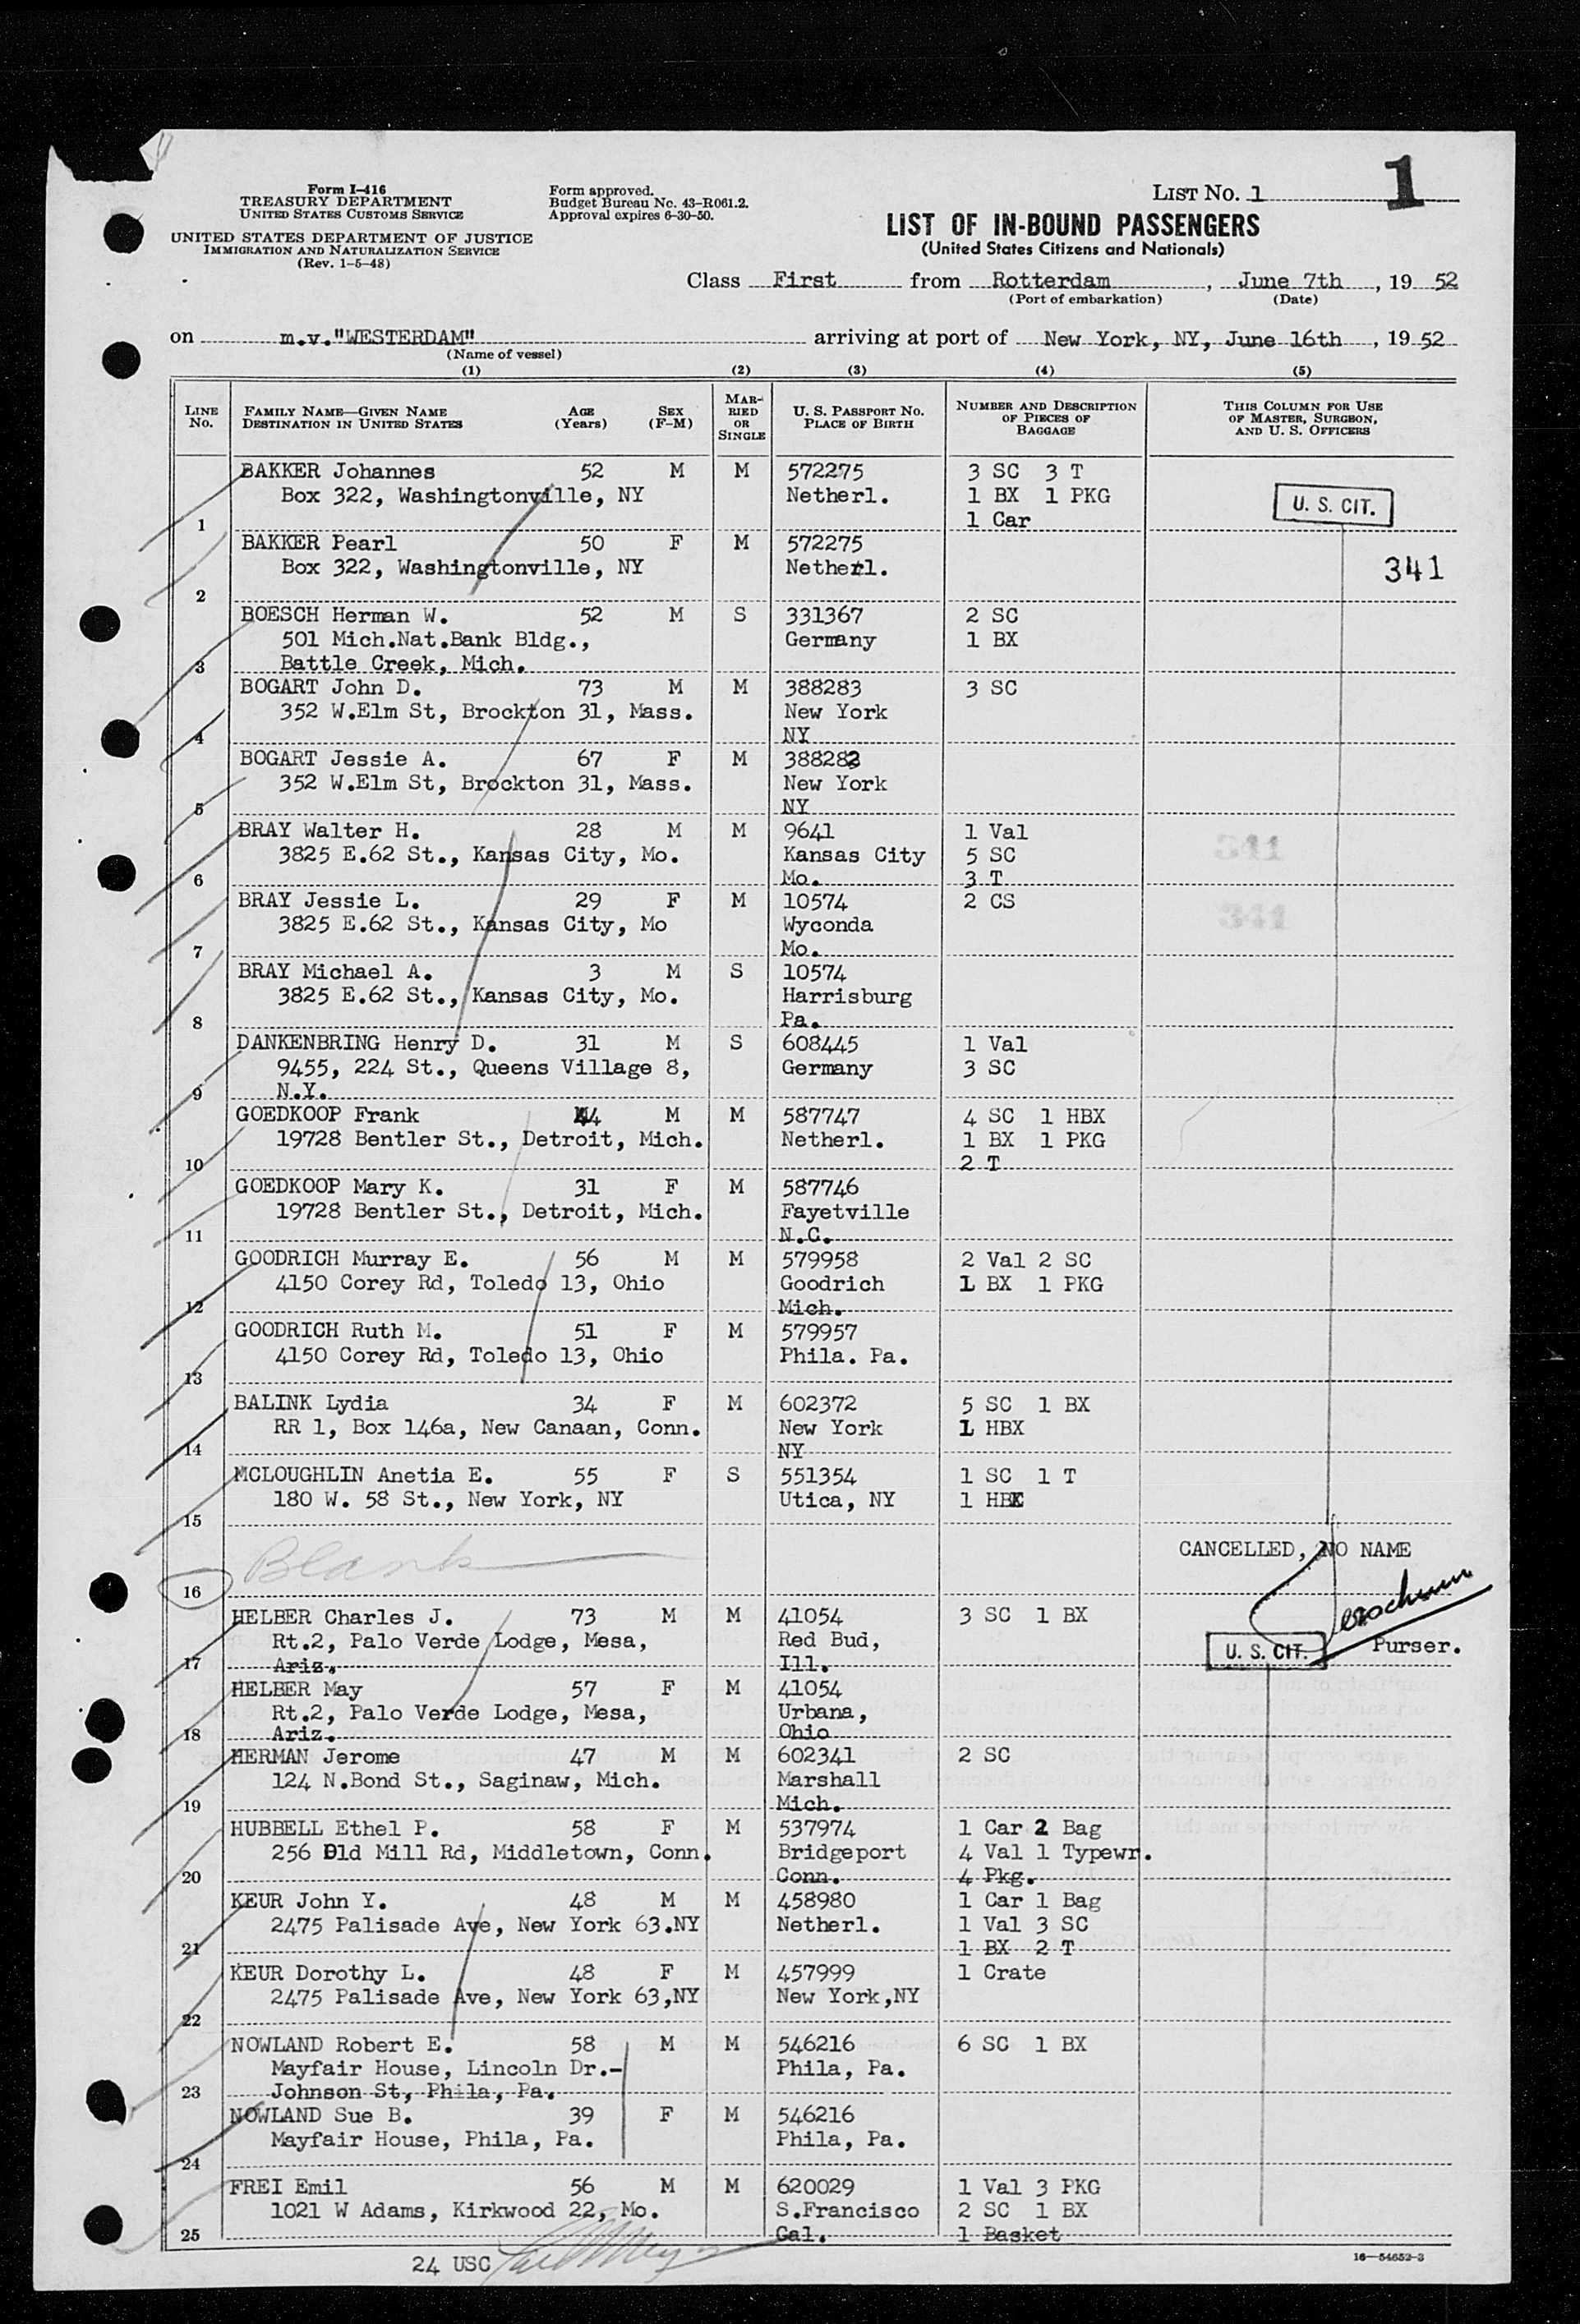 1
Form I-416
TREASURY DEPARTMENT
UNITED STATES CUSTOMS SERVICE
UNITED STATES DEPARTMENT OF JUSTICE
IMMIGRATION AND NATURALIZATION SERVICE
(Rev. 1-5-48)
Form approved.
Budget Bureau No. 43-R061.2.
Approval expires 6-30-50.
LIST NO. 1
LIST OF IN-BOUND PASSENGERS
(United States Citizens and Nationals)
Class First from Rotterdam, June 7th, 19 52
(Port of embarkation) (Date)
on m.v."WESTERDAM" arriving at port of New York, NY, June 16th, 19 52
(Name of vessel)
(1) (2) (3) (4) (5)
LINE NO.
FAMILY NAME—GIVEN NAME
DESTINATION IN UNITED STATES
AGE (Years)
SEX (F-M)
MARRIED OR SINGLE
U. S. PASSPORT NO.
PLACE OF BIRTH
NUMBER AND DESCRIPTION OF PIECES OF BAGGAGE
THIS COLUMN FOR USE OF MASTER, SURGEON, AND U. S. OFFICERS
BAKKER Johannes 52 M M 572275 3 SC 3 T
Box 322, Washingtonville, NY Netherl. 1 BX 1 PKG U. S. CIT.
1 1 Car
BAKKER Pearl 50 F M 572275
Box 322, Washingtonville, NY Netherl. 341
2
BOESCH Herman W. 52 M S 331367 2 SC
501 Mich.Nat.Bank Bldg., Germany 1 BX
3 Battle Creek, Mich.
BOGART John D. 73 M M 388283 3 SC
352 W.Elm St, Brockton 31, Mass. New York
4 NY
BOGART Jessie A. 67 F M 388282
352 W.Elm St, Brockton 31, Mass. New York
5 NY
BRAY Walter H. 28 M M 9641 1 Val
3825 E.62 St., Kansas City, Mo. Kansas City 5 SC 341
6 Mo. 3 T
BRAY Jessie L. 29 F M 10574 2 CS
3825 E.62 St., Kansas City, Mo Wyconda 341
7 Mo.
BRAY Michael A. 3 M S 10574
3825 E.62 St., Kansas City, Mo. Harrisburg
8 Pa.
DANKENBRING Henry D. 31 M S 608445 1 Val
9455, 224 St., Queens Village 8, Germany 3 SC
9 N.Y.
GOEDKOOP Frank 44 M M 587747 4 SC 1 HBX
19728 Bentler St., Detroit, Mich. Netherl. 1 BX 1 PKG
10 2 T
GOEDKOOP Mary K. 31 F M 587746
19728 Bentler St., Detroit, Mich. Fayetville
11 N.C.
GOODRICH Murray E. 56 M M 579958 2 Val 2 SC
4150 Corey Rd, Toledo 13, Ohio Goodrich 1 BX 1 PKG
12 Mich.
GOODRICH Ruth M. 51 F M 579957
4150 Corey Rd, Toledo 13, Ohio Phila. Pa.
13
BALINK Lydia 34 F M 602372 5 SC 1 BX
RR 1, Box 146a, New Canaan, Conn. New York 1 HBX
14 NY
MCLOUGHLIN Anetia E. 55 F S 551354 1 SC 1 T
180 W. 58 St., New York, NY Utica, NY 1 HBX
15
Blank CANCELLED, NO NAME
16
HELBER Charles J. 73 M M 41054 3 SC 1 BX
Rt.2, Palo Verde Lodge, Mesa, Red Bud, U. S. CIT. Purser.
17 Ariz. Ill.
HELBER May 57 F M 41054
Rt.2, Palo Verde Lodge, Mesa, Urbana,
18 Ariz. Ohio
HERMAN Jerome 47 M M 602341 2 SC
124 N.Bond St., Saginaw, Mich. Marshall
19 Mich.
HUBBELL Ethel P. 58 F M 537974 1 Car 2 Bag
256 Old Mill Rd, Middletown, Conn. Bridgeport 4 Val 1 Typewr.
20 Conn. 4 Pkg.
KEUR John Y. 48 M M 458980 1 Car 1 Bag
2475 Palisade Ave, New York 63.NY Netherl. 1 Val 3 SC
21 1 BX 2 T
KEUR Dorothy L. 48 F M 457999 1 Crate
2475 Palisade Ave, New York 63,NY New York,NY
22
NOWLAND Robert E. 58 M M 546216 6 SC 1 BX
Mayfair House, Lincoln Dr.- Phila, Pa.
23 Johnson St, Phila, Pa.
NOWLAND Sue B. 39 F M 546216
Mayfair House, Phila, Pa. Phila, Pa.
24
FREI Emil 56 M M 620029 1 Val 3 PKG
1021 W Adams, Kirkwood 22, Mo. S.Francisco 2 SC 1 BX
25 Cal. 1 Basket
24 USC
16—54652-3